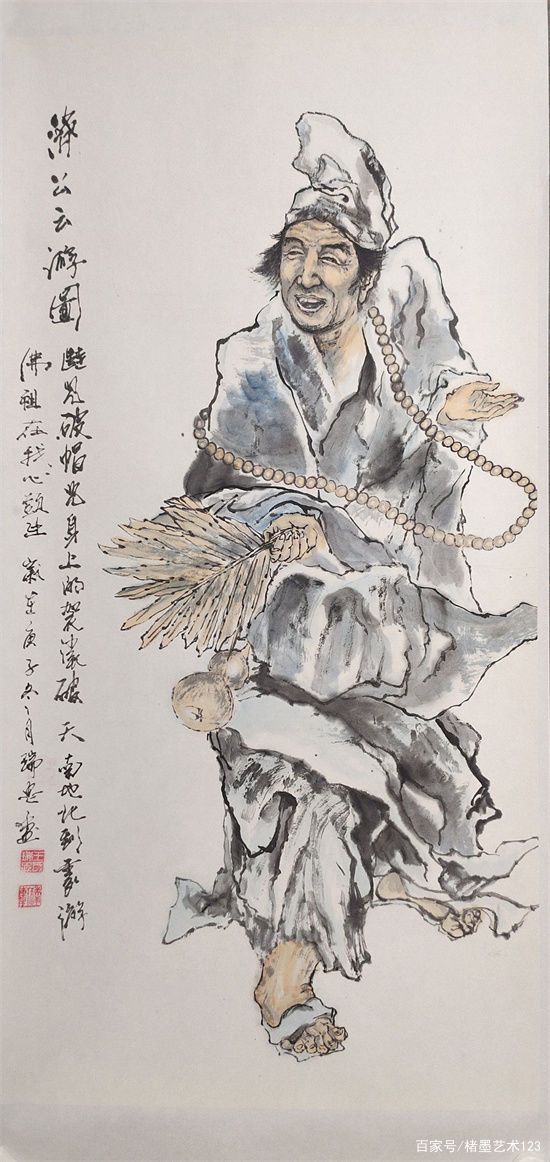 濟公云游圖
鞋儿破帽儿身上的袈裟破 天南地北到游
佛祖在我心頭 歲在庚子冬月瑞画
百家号/楮墨艺术123